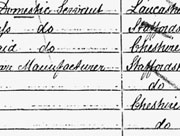 Domestic Servant Lancashire
do Staffords
do Cheshire
Manufacturer Staffordsh
do
Cheshire
do